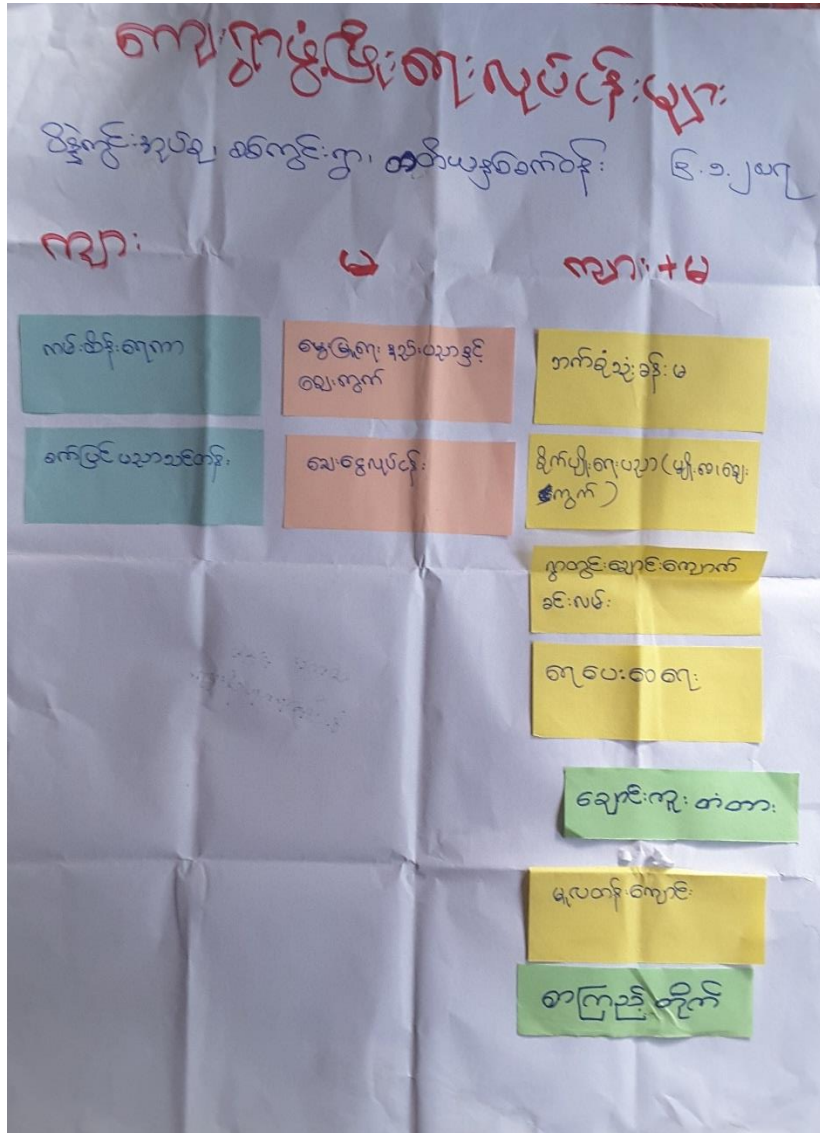 ကျေးရွာဖွံ့ဖြိုးရေးလုပ်ငန်းများ
ပိန္နဲကွင်းအုပ်စု၊ စစ်ကွင်းရွာ၊ တတိယနှစ်စက်ဝန်း ၆.၁.၂၀၁၇
ကျား
မ
ကျား+မ
ကမ်းထိန်းရေကာ
စက်ပြင်ပညာသင်တန်း
မွေးမြူရေး နည်းပညာနှင့်
ဈေးကွက်
အသေးငွေလုပ်ငန်း
ဘက်စုံသုံးခန်းမ
စိုက်ပျိုးရေးပညာ (မျိုး၊ဆေး၊ဈေး
ကွက်)
ရွာတွင်းချောင်းကျောက်
ခင်းလမ်း
ရေပေးဝေရေး
ချောင်းကူး တံတား
မူလတန်းကျောင်း
စာကြည့်တိုက်